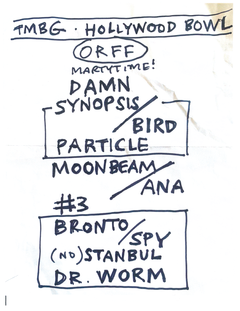 TMBG · HOLLYWOOD BOWL
ORFF
MARTYTIME!
DAMN
SYNOPSIS/
BIRD
PARTICLE
MOONBEAM/
ANA
#3
BRONTO/
SPY
(NO)STANBUL
DR. WORM